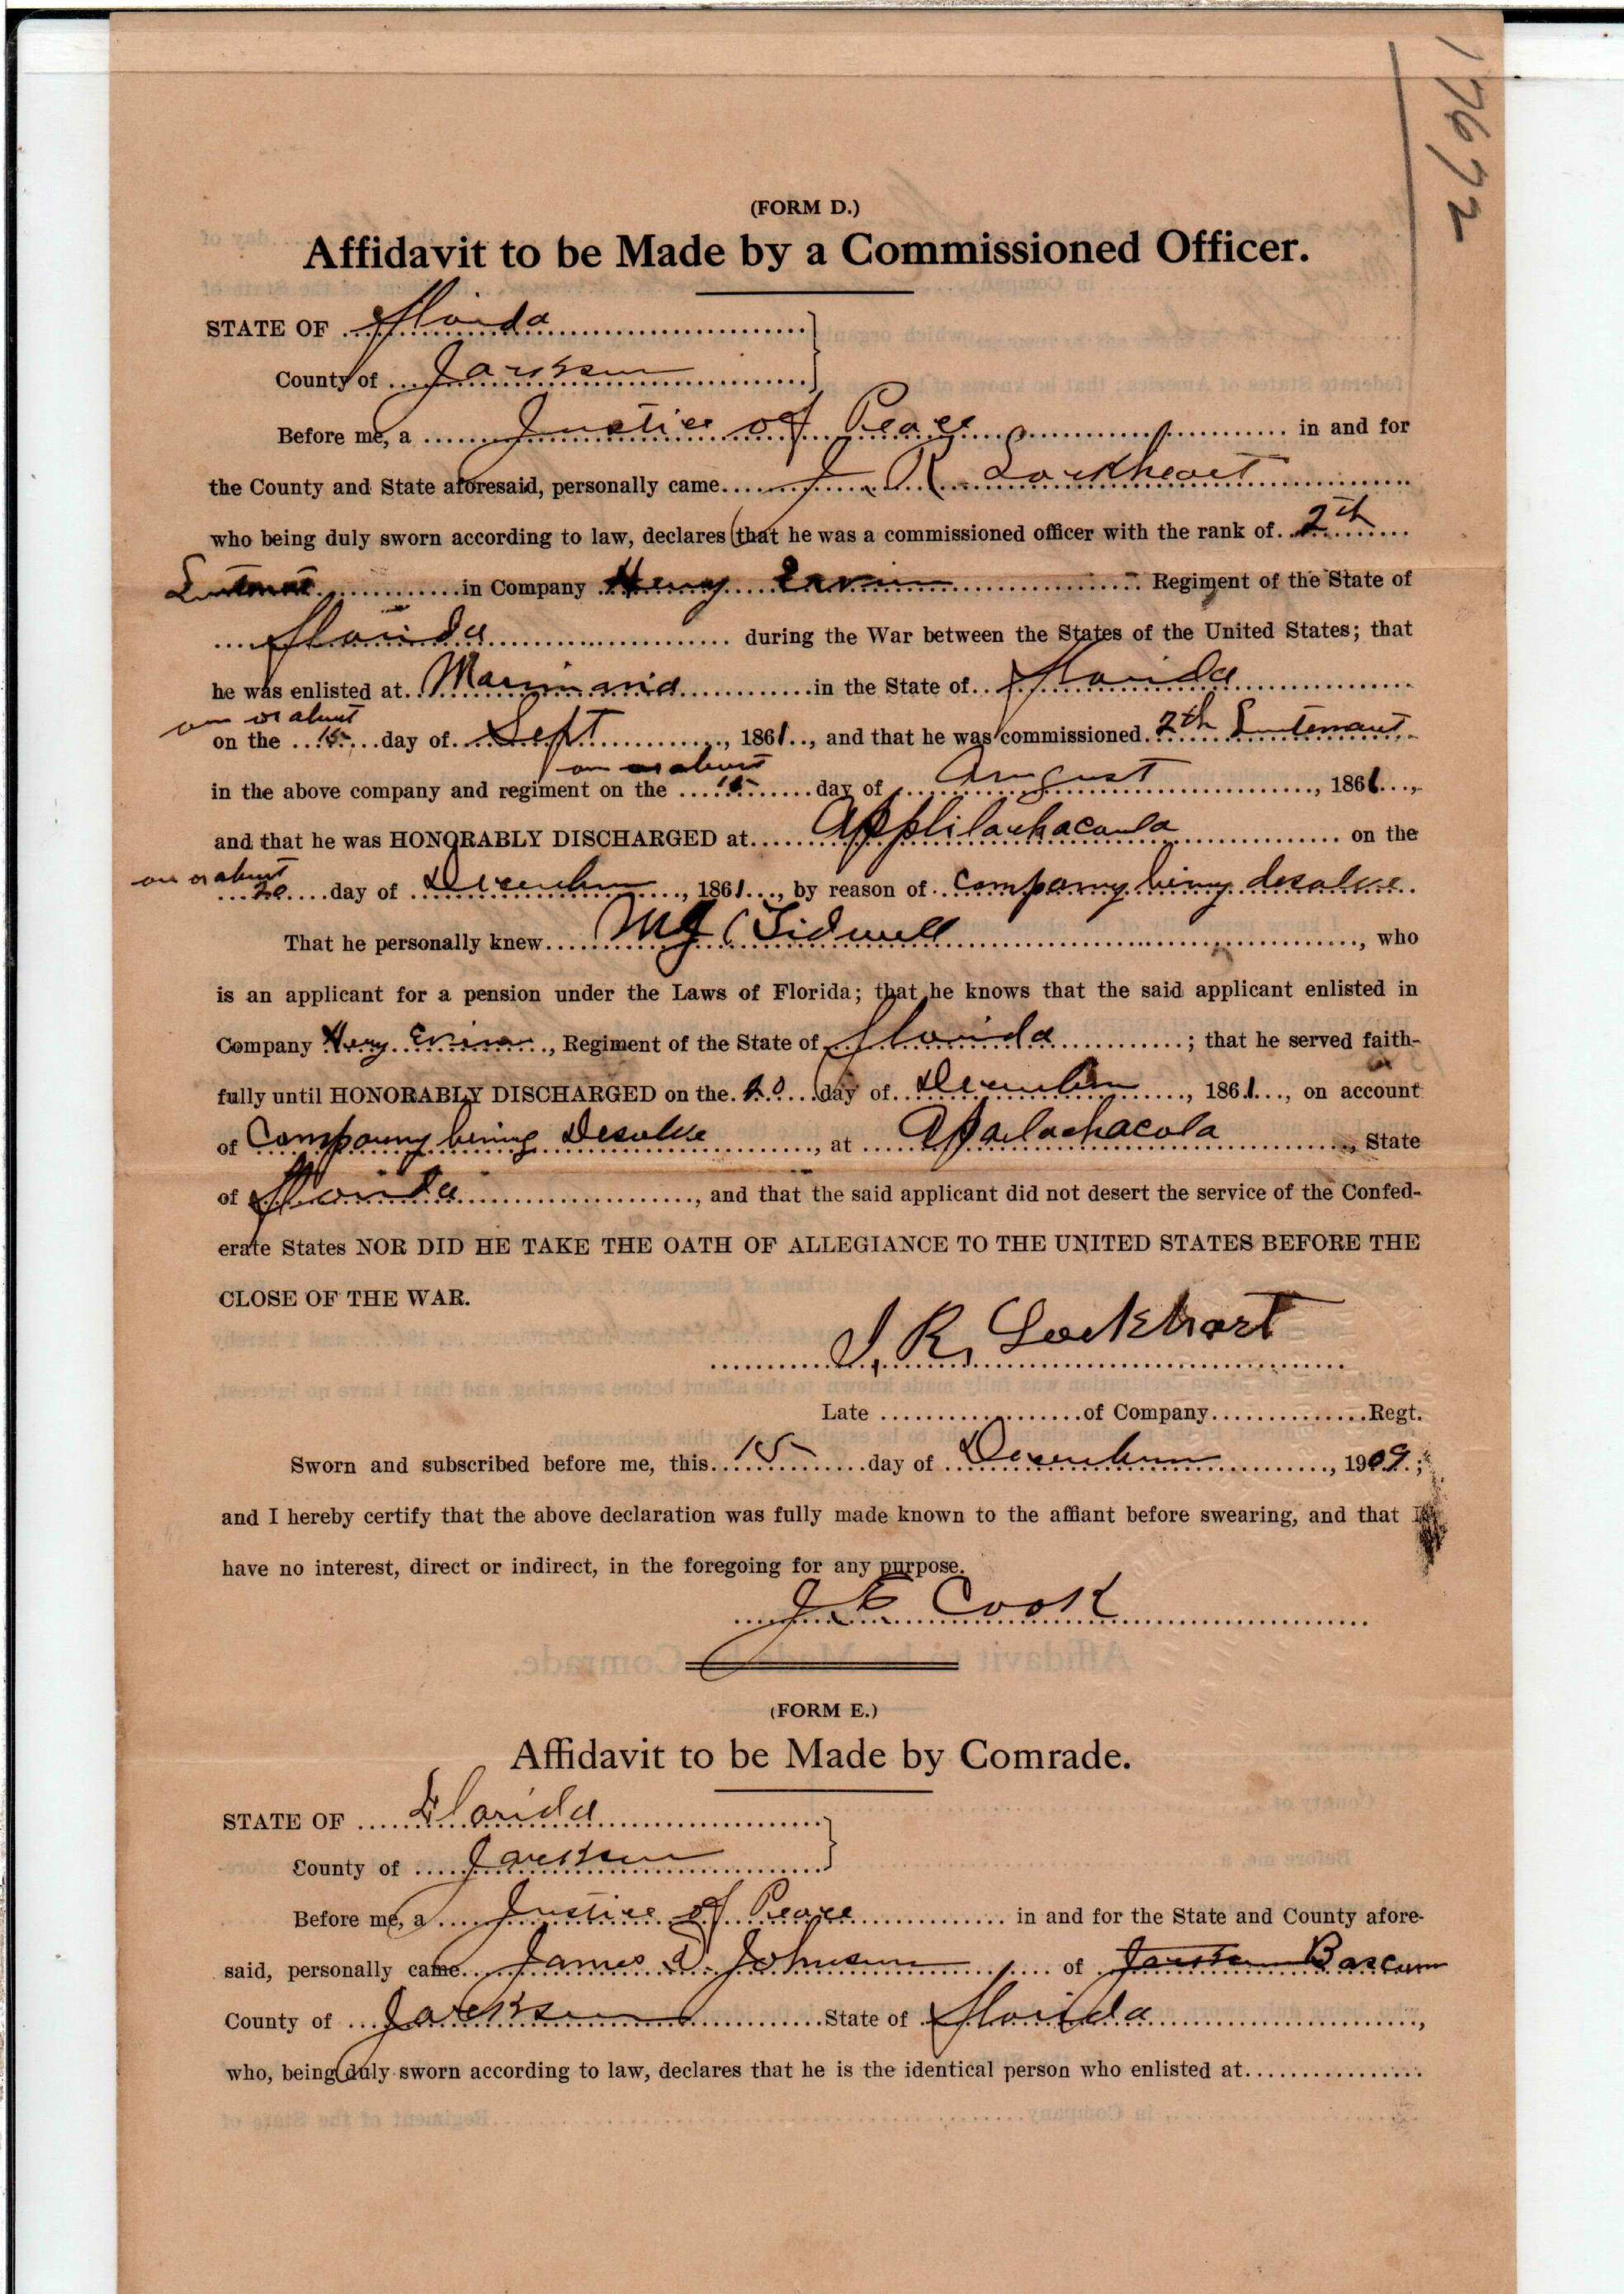 17672
(FORM D.)
Affidavit to be Made by a Commissioned Officer.
STATE OF Florida
County of Jackson
Before me, a Justice of Peace in and for
the County and State aforesaid, personally came J. R. Lockheart
who being duly sworn according to law, declares that he was a commissioned officer with the rank of 2th
in Company Henry Regiment of the State of
Florida during the War between the States of the United States; that
he was enlisted at in the State of Florida
on or about
on the 15 day of Sept, 1861, and that he was commissioned 2th Lutenant
on or about
in the above company and regiment on the 15 day of August, 1861,
and that he was HONORABLY DISCHARGED at Applilachacoula on the
on or about
20 day of December, 1861, by reason of Company being desolve
That he personally knew Tidwell, who
is an applicant for a pension under the Laws of Florida; that he knows that the said applicant enlisted in
Company, Regiment of the State of Florida; that he served faith-
fully until HONORABLY DISCHARGED on the 20 day of December, 1861, on account
of Company being Desolve, at Apalachacola, State
of Florida, and that the said applicant did not desert the service of the Confed-
erate States NOR DID HE TAKE THE OATH OF ALLEGIANCE TO THE UNITED STATES BEFORE THE
CLOSE OF THE WAR.
J. R. Lockhart
Late of Company Regt.
Sworn and subscribed before me, this 15 day of December, 1909;
and I hereby certify that the above declaration was fully made known to the affiant before swearing, and that I
have no interest, direct or indirect, in the foregoing for any purpose.
J E Cook
(FORM E.)
Affidavit to be Made by Comrade.
STATE OF Florida
County of Jackson
Before me, a Justice of Peace in and for the State and County afore-
said, personally came James D. Johnson of Bascum
County of Jackson State of Florida,
who, being duly sworn according to law, declares that he is the identical person who enlisted at